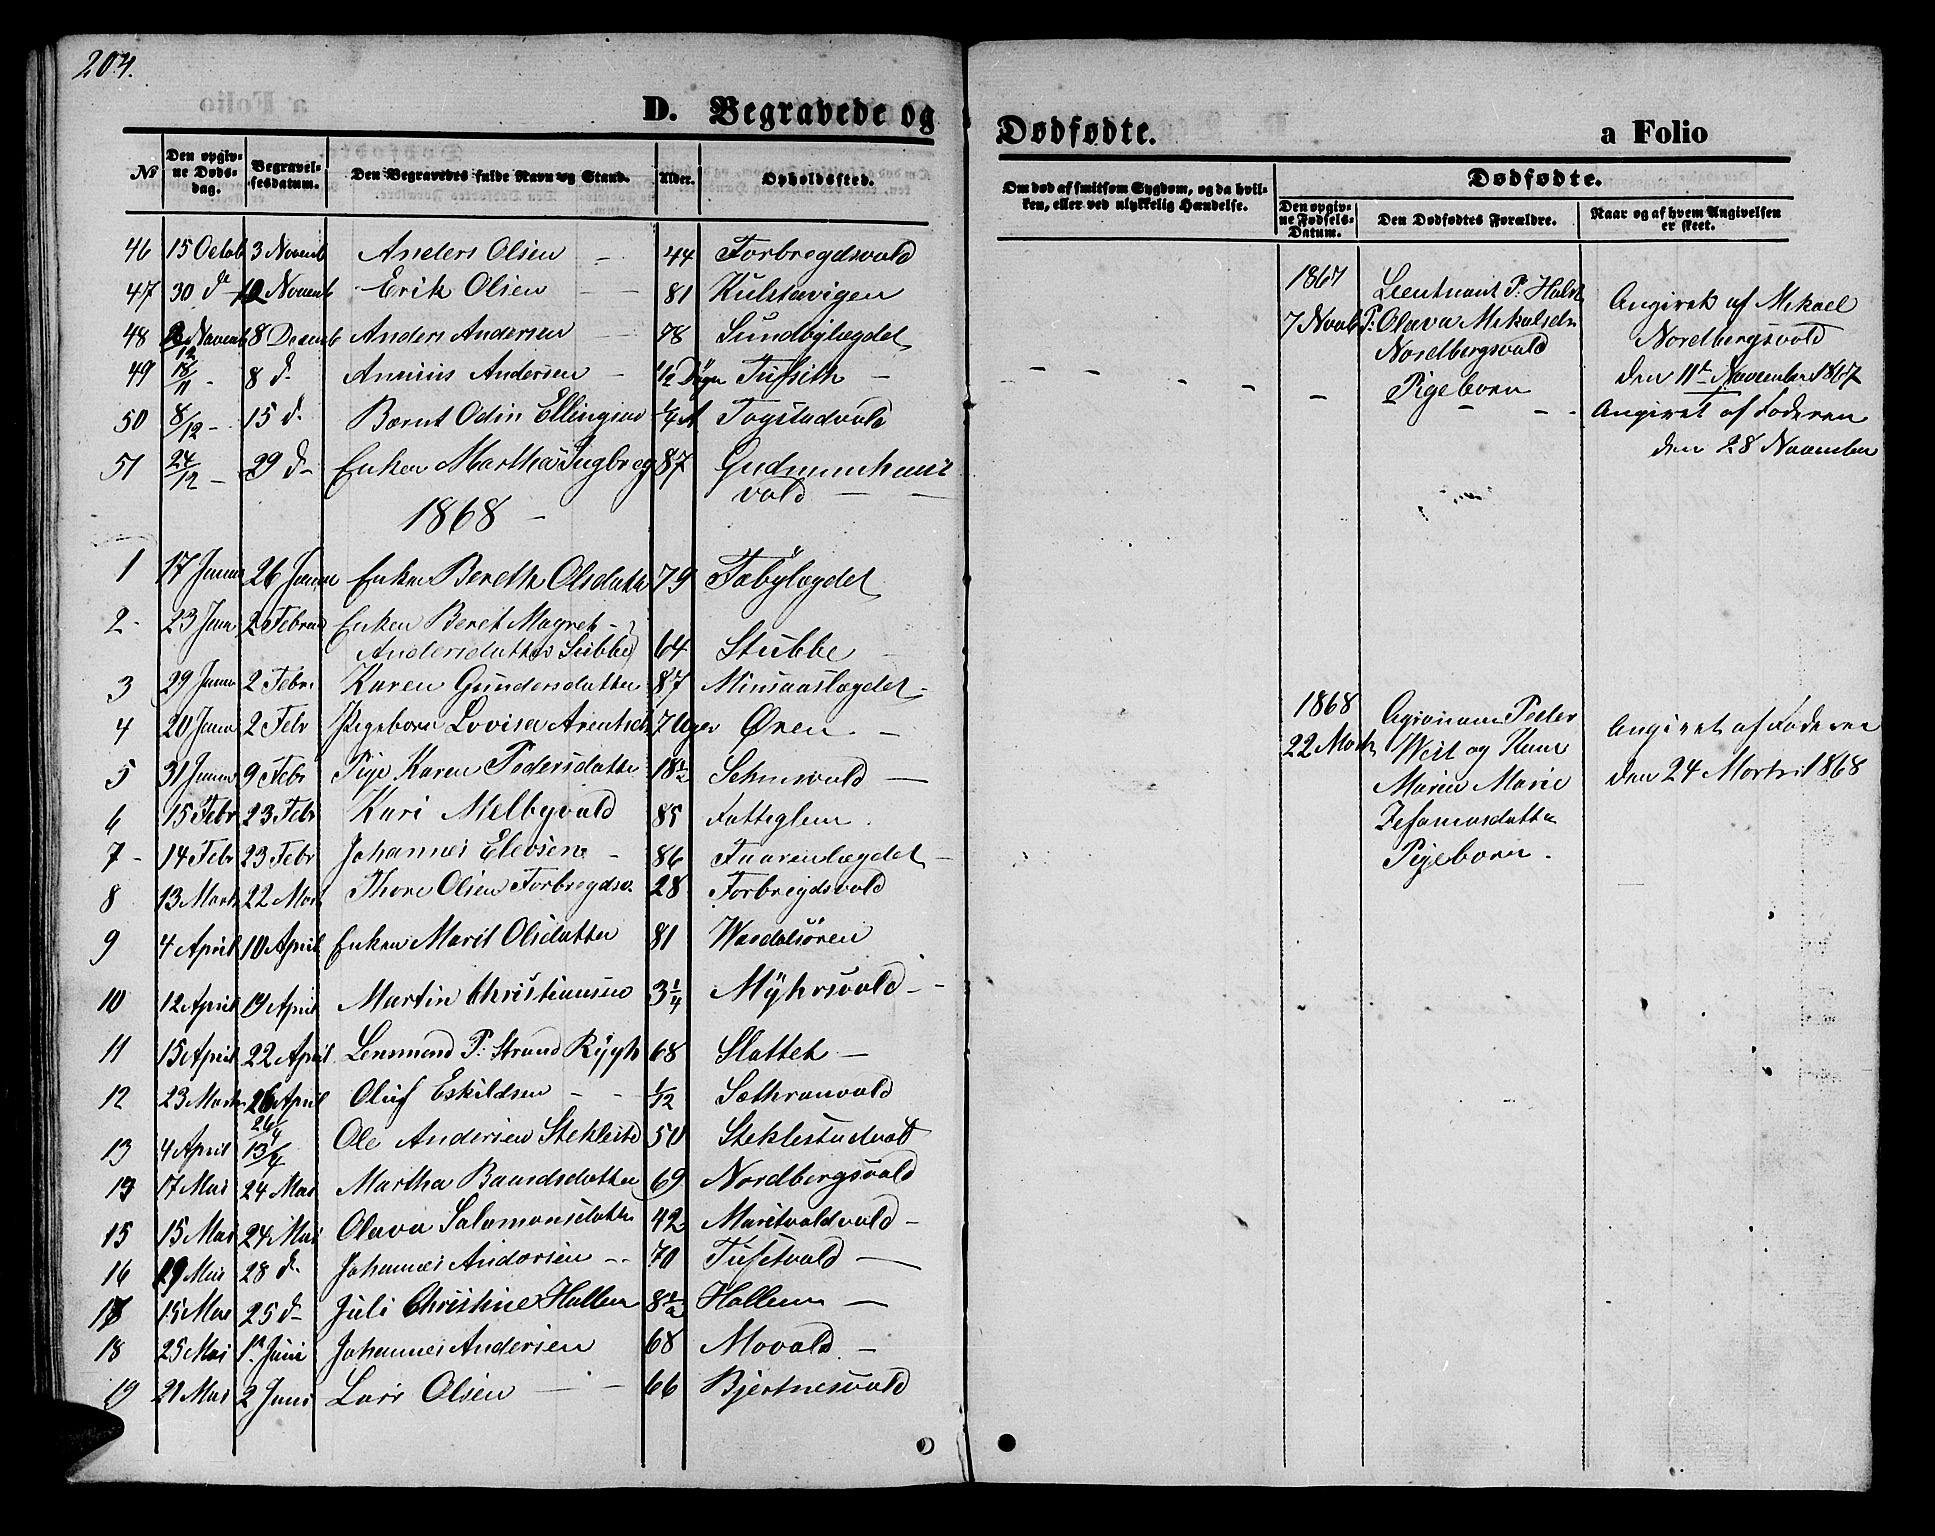 204.
D. Begravede og
Dødfødte.
a Folio
No
Den opgivne Dødsdag.
Begravelsesdatum.
Den Begravedes fulde Navn og Stand.
Alder.
Opholdssted.
Om død af smitsom Sygdom, og da hvilken, eller ved ulykkelig Hændelse.
Dødfødte.
Den opgivne Fødsels-Datum.
Den Dødfødtes Forældre.
Naar og af hvem Angivelsen er skeet.
46 15 Octob 3 Novemb Anders Olsen - 44 Forbregdsvald
47 30 d 12 Novemb Erik Olsen - - 81 Kulstavigen
48 2 Novemb 8 Decemb Anders Andersen - 78 Sundbylægdet
49 18/11 - 8 d. Andersen - 1/2 Døgn
50 8/12 - 15 d. Bernt Odin 1/4 A
51 24/12 - 29 d - Enken Martha Ingbreg 87
vald - -
1868 -
1 17 Janua 26 Janua Enken Bereth Olsdatter 79 Fæbylægdet
2 - 23 Janu 2 Februa Enken Beret Magret -
Andersdatter 64 Stubbe -
3 29 Janua 2 Febr. Karen Gundersdatter 87 Minsaaslægdet -
4 20 Janu 2 Febr Pigeborn Lovisa Arentsd 7 Uger Øren. -
5 31 Janua 9 Febr Pige Karen Pedersdatter 18 1/2
6 15 Febr 23 Febr Kari Melbyvald 85
7 - 14 Febr 23 Febr Johannes Elevsen - 86 Faarenlægdet -
8 13 Marts 22 Mart Thore Olsen Forbregdsv. 28 Forbregdsvald
9 4 April 10 April Enken Marit Olsdatter 81
10 12 April 19 April Martin Christiansen 3 1/4 Mÿhrsvald - -
11 15 April 22 April Lensmand P. Strand Rÿgh 68 Slattet -
12 23 Marts 26 April Oluf Eskildsen - - 1/12
26/4
13 4 April 13/4 Ole Andersen 50
17 Mai 24 Mai Martha Baardsdatter 69 Nordbergsvald
15 15 Mai 24 Mai Olava Salamonsdatter 42 Maritvaldvald -
16 29 Mai 28 d. Johannes Andersen - - 70 -
17 15 Mai 25 d - Juli Christine Hallem 8 1/2 Hallem -
18 25 Mai 1st Juni Johannes Andersen 68 Movald. -
19 21 Mai 2 Juni Lars Olsen - - 66 Bjertnesvald
1867
7 Novb
Lieutnant P. Holst
P. Olava Mikalsdr
Nordbergsvald
Pigeborn
Angivet af Mikael
Nordbergsvold
den 11te November 1867
Angivet af Faderen
den 28 November
1868
22 Marts
Agronom Peder
West og Kone
Maren Marie
Pigeborn.
Angivet af Faderen
den 24 Marts 1868